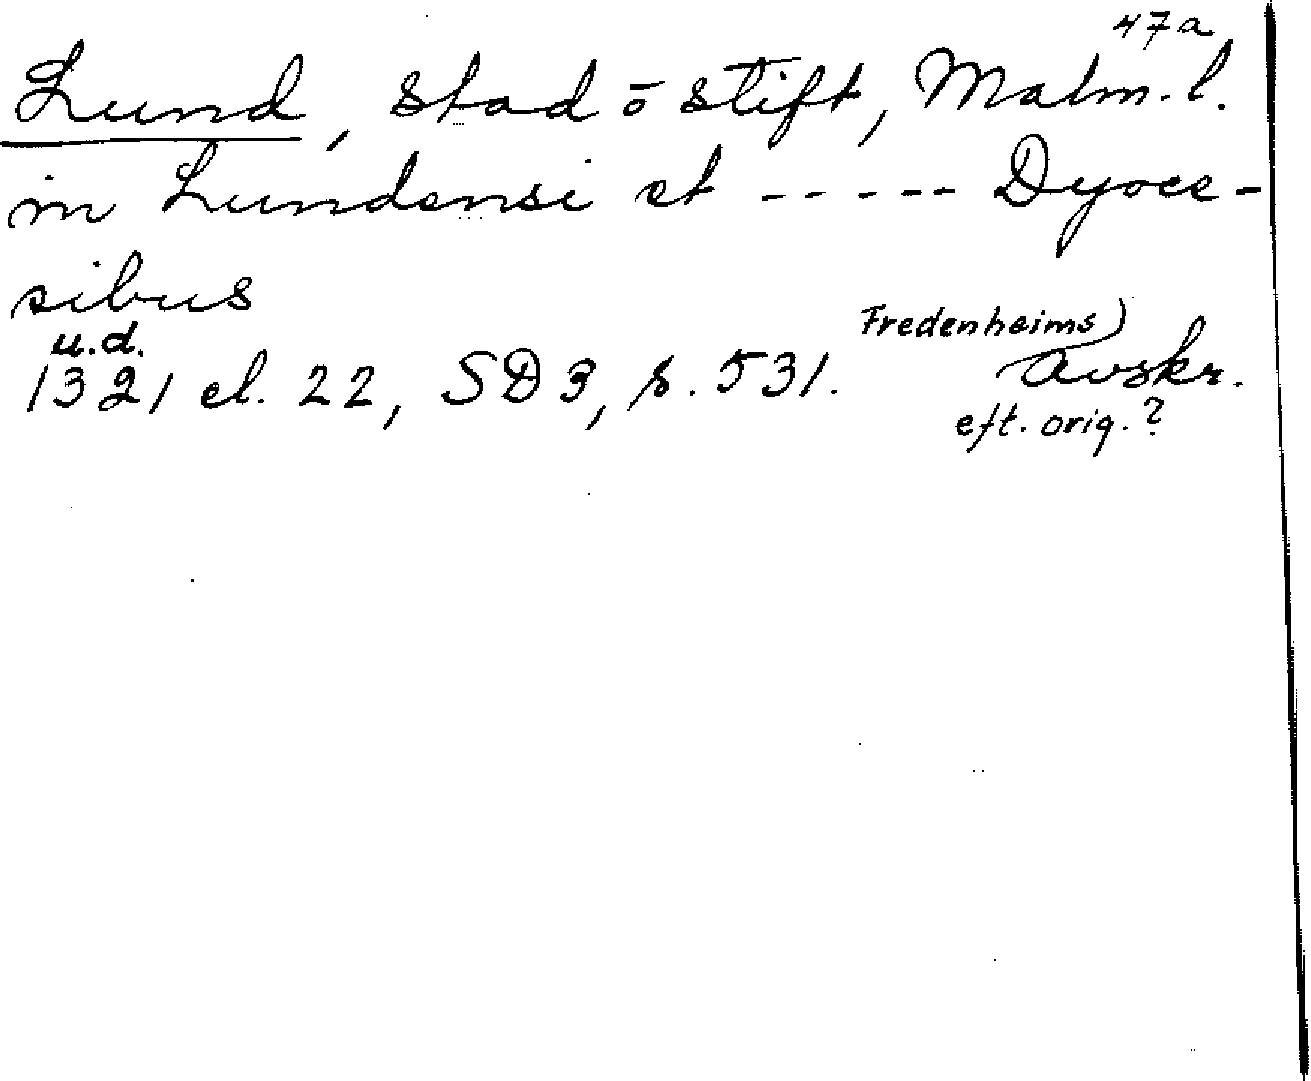 47a
Lund, stad ō stift, Malm. l.
in Lundensi et ----- Dyoce-
sibus
u.d.
1321 el. 22, SD 3, s. 531. Fredenheims) avskr.
eft. orig.?